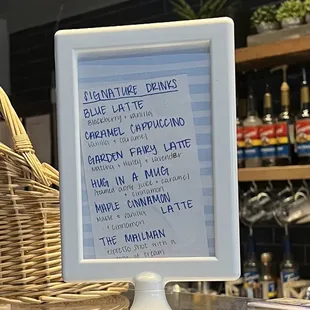 SIGNATURE DRINKS
BLUE LATTE
BLACKBERRY + VANILLA
CARAMEL CAPPUCCINO
VANILLA + CARAMEL
GARDEN FAIRY LATTE
MATCHA + HONEY + LAVENDER
HUG IN A MUG
STEAMED APPLE JUICE + CARAMEL
+ CINNAMON
MAPLE CINNAMON
LATTE
MAPLE + VANILLA
+ CINNAMON
THE MAILMAN
ESPRESSO SHOT WITH A
OF STEAM